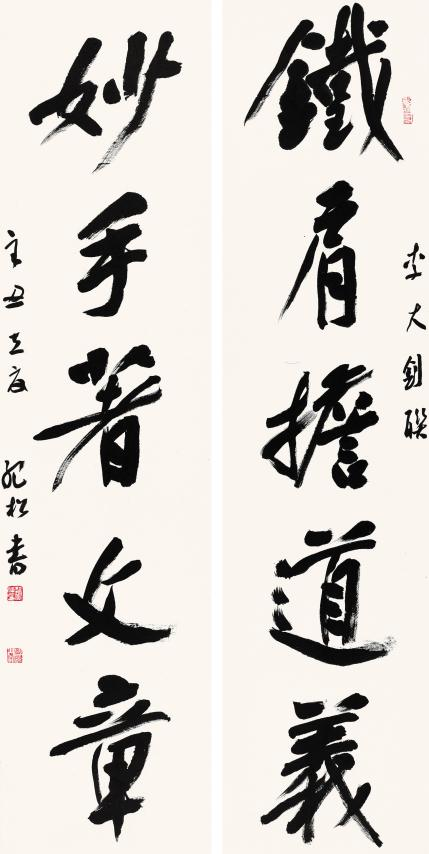 李大釗聯
鐵肩擔道義
妙手著文章
辛丑立夏
松書